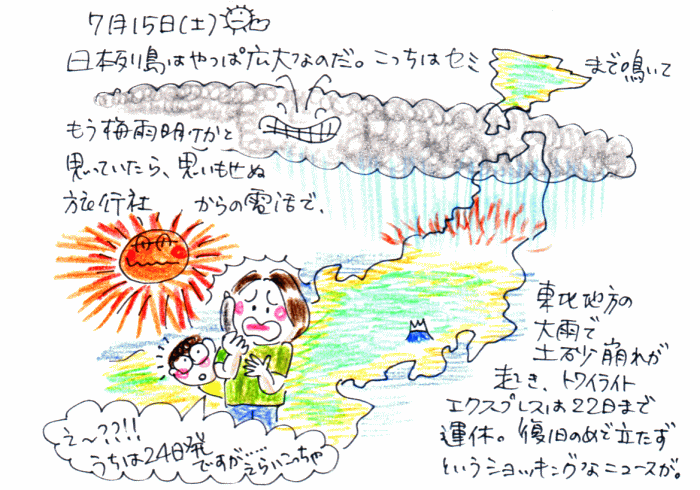 7月15日(土)
日本列島はやっぱ広大なのだ。こっちはセミまで鳴いて
もう梅雨明けかと
思っていたら、思いもせぬ
旅行社からの電話で、
東北地方の
大雨で
土砂崩れが
起き、トワイライト
エクスプレスは22日まで
運休。復旧のめど立たず
というショッキングなニュースが。
え〜??!!
うちは24日発
ですが……えらいこっちゃ